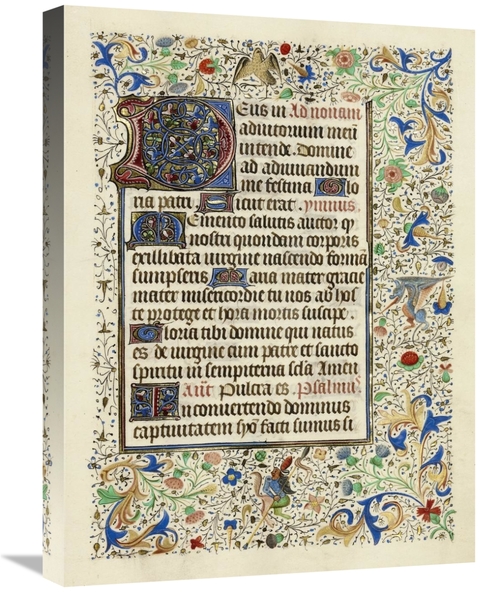 Deus in Ad nonam
adiutorium meū
intende. Domine
ad adiuuandum
me festina Glo
ria patri Sicut erat. ymnus.
Memento salutis auctor q̄
nostri quondam corporis
ex illibata uirgine nascendo formā
sumpseris Maria mater gracie
mater misericordie tu nos ab hos
te protege et hora mortis suscipe.
Gloria tibi domine qui natus
es de uirgine cum patre et sancto
spiritu in sempiterna scla Amen
Añt Pulcra es. Psalmus
In conuertendo dominus
captiuitatem syō facti sumus si